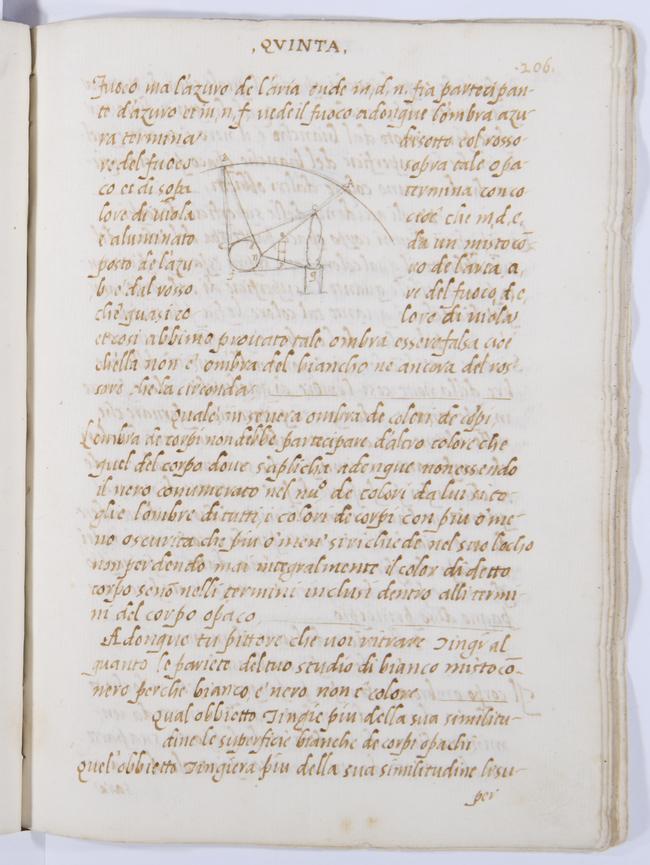 , QVINTA ,
.206.
fuoco ma l'azuro de l'aria onde in, d, n, fia partecipan-
te d'azuro et in, n, f, uede il fuoco adonque l'ombra azu-
ra termina disotto col rosso
re del fuoco sopra tale opa
co et di sopa termina con co
lore di uiola cioè che in, d, e,
è aluminato da un misto cō-
posto de l'azu ro de l'aria, a,
b, e dal rosso re del fuoco, d, e,
ch'è quasi co lore di uiola
et cosi abbimo prouato tale ombra essere falsa cioè
ch'ella non è ombra del biancho ne ancora del ros-
sore che la circonda
Quale in se uera ombra de colori de corpi
L'ombra de corpi non debbe partecipare d'altro colore che
quel del corpo doue s'aplicha adonque non essendo
il nero connumerato nel nu.º de colori da lui si to-
glie l'ombre di tutti, i colori de corpi con piu o me-
no oscurita che piu o men' si richiede nel suo locho
non perdendo mai integralmente il color di detto
corpo senō nelli termini inclusi dentro alli termi-
ni del corpo opaco
Adonque tu pittore che uoi ritrare Tingi al
quanto le pariete del tuo studio di bianco misto cō
nero perche bianco, e' nero non è colore
Qual obbietto Tingie piu della sua similitu-
dine le superficie bianche de corpi opachi
Quel' obbietto Tingiera piu della sua similitudine le su-
per